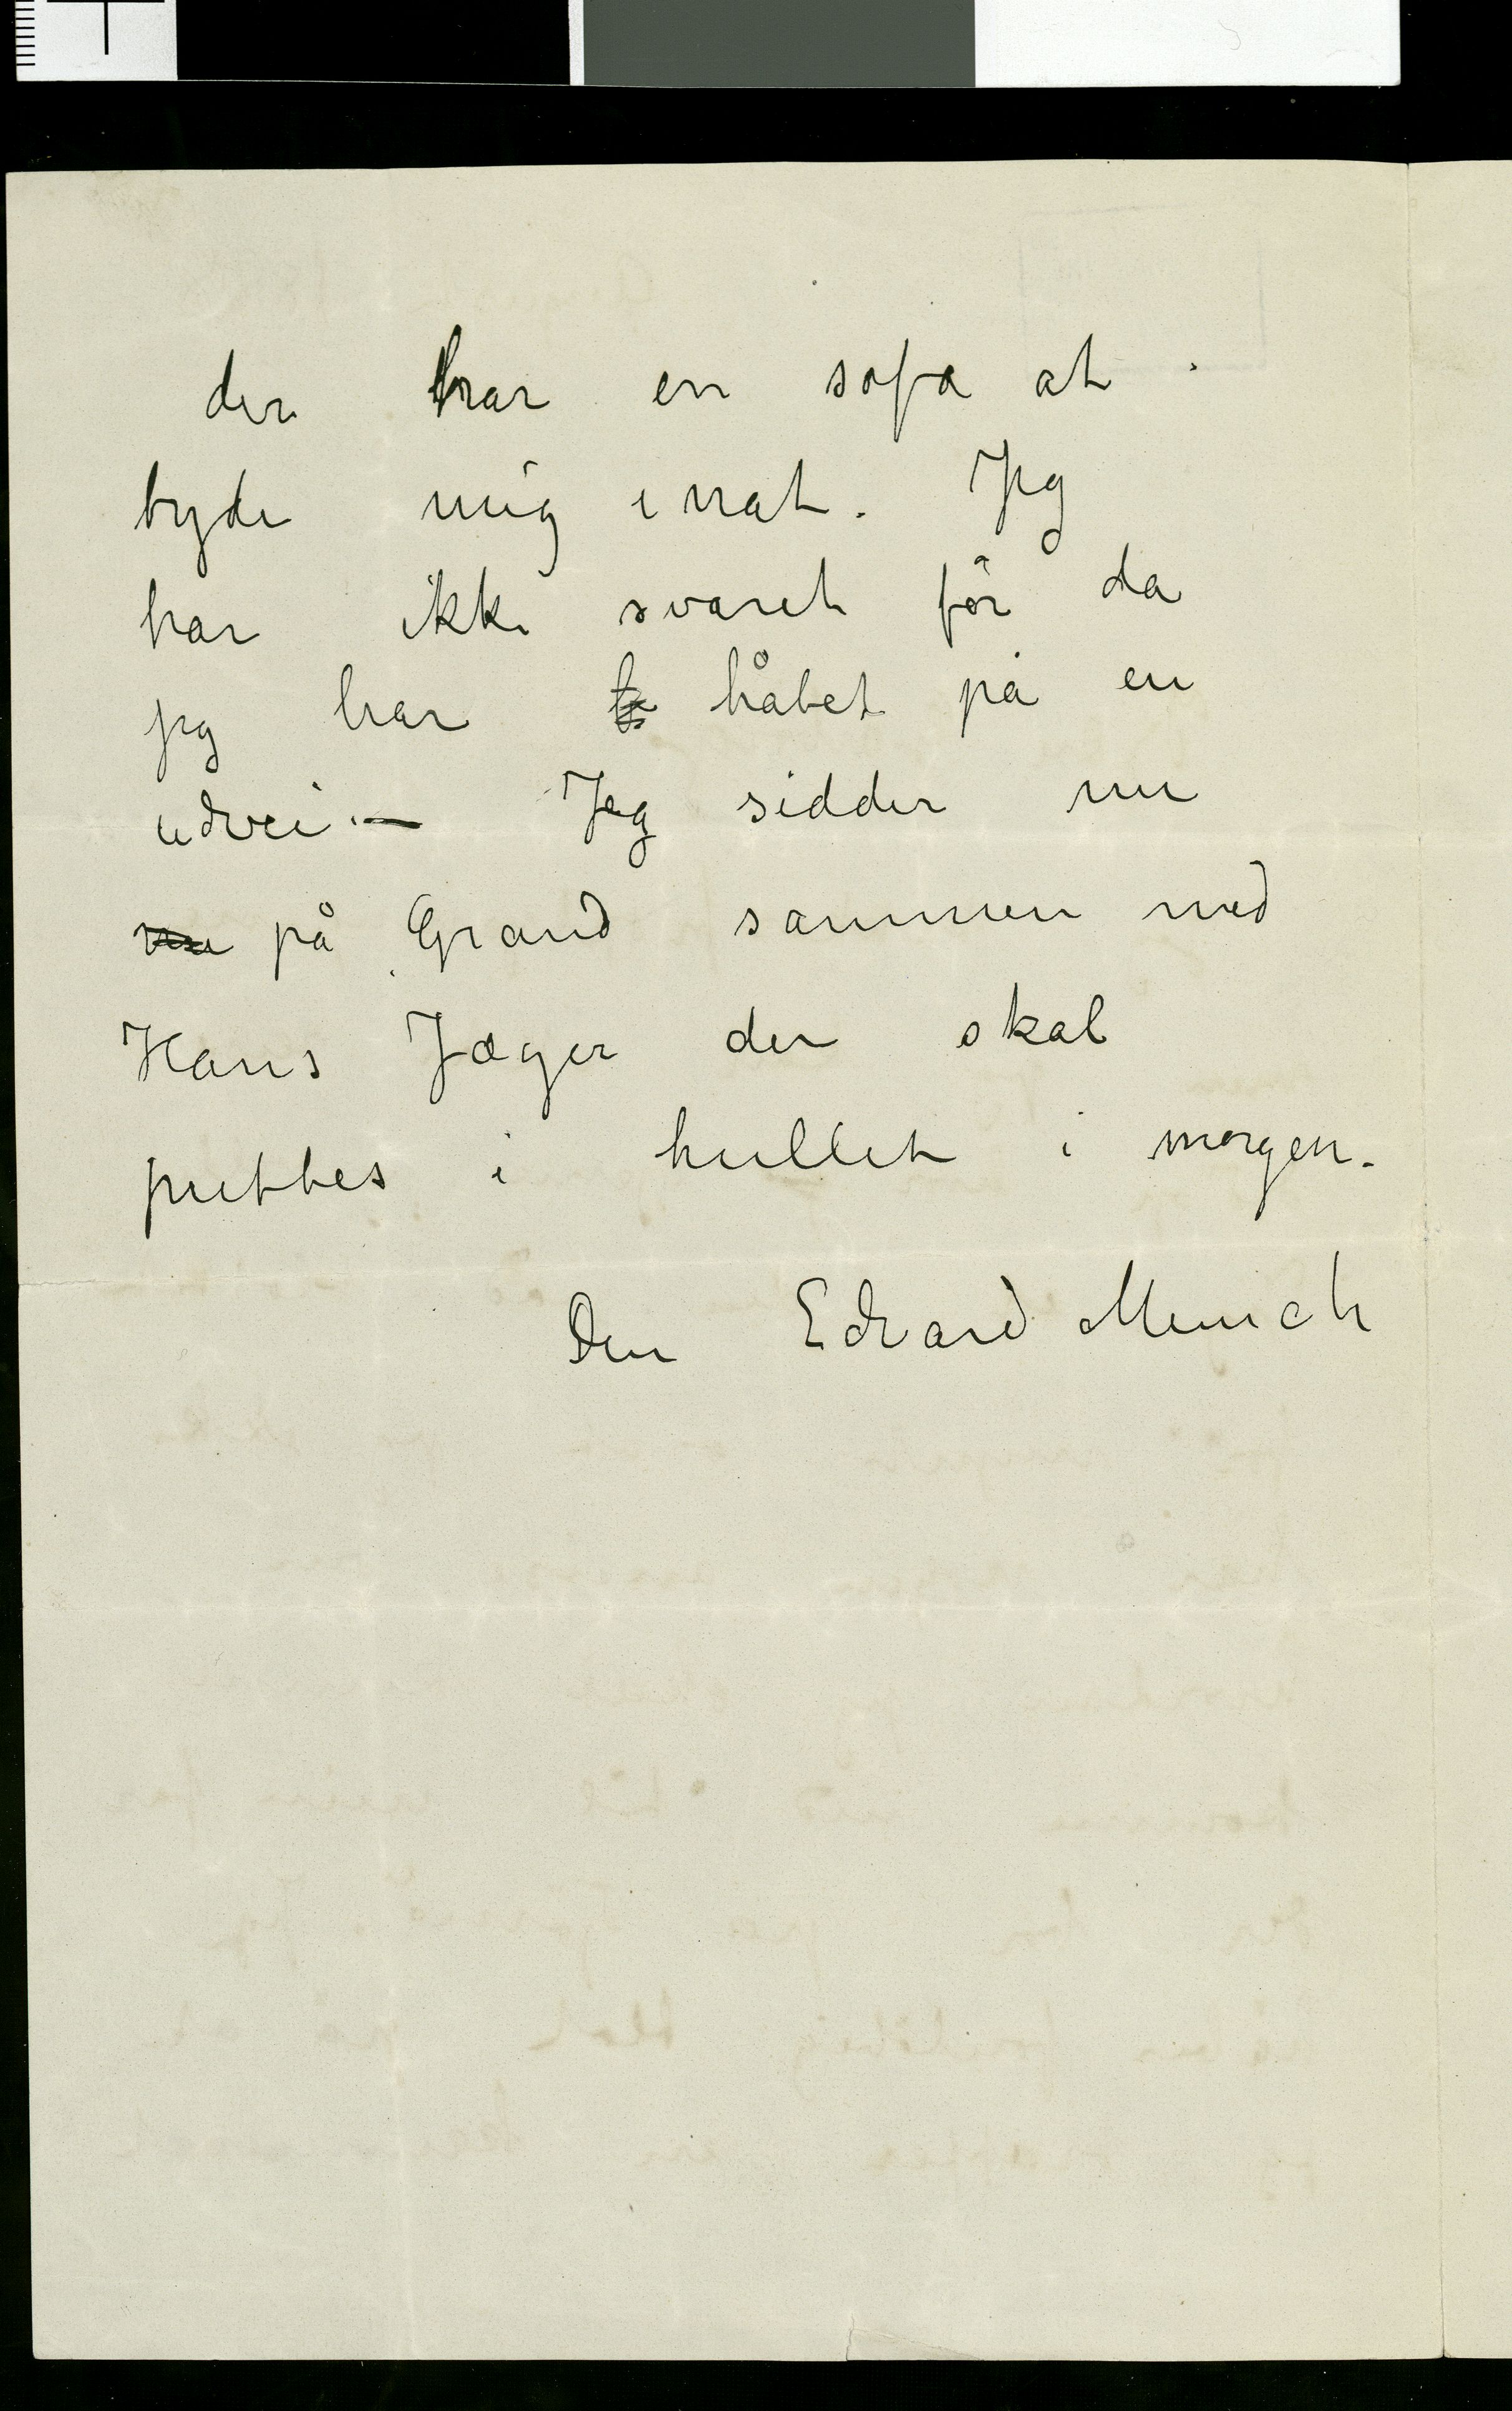 der har en sofa at
byde mig inat. Jeg
har ikke svaret för da
jeg har håbet på en
udvei. — Jeg sidder nu
nu på Grand sammen med
Hans Jæger der skal
puttes i hullet i morgen.
Din Edvard Munch